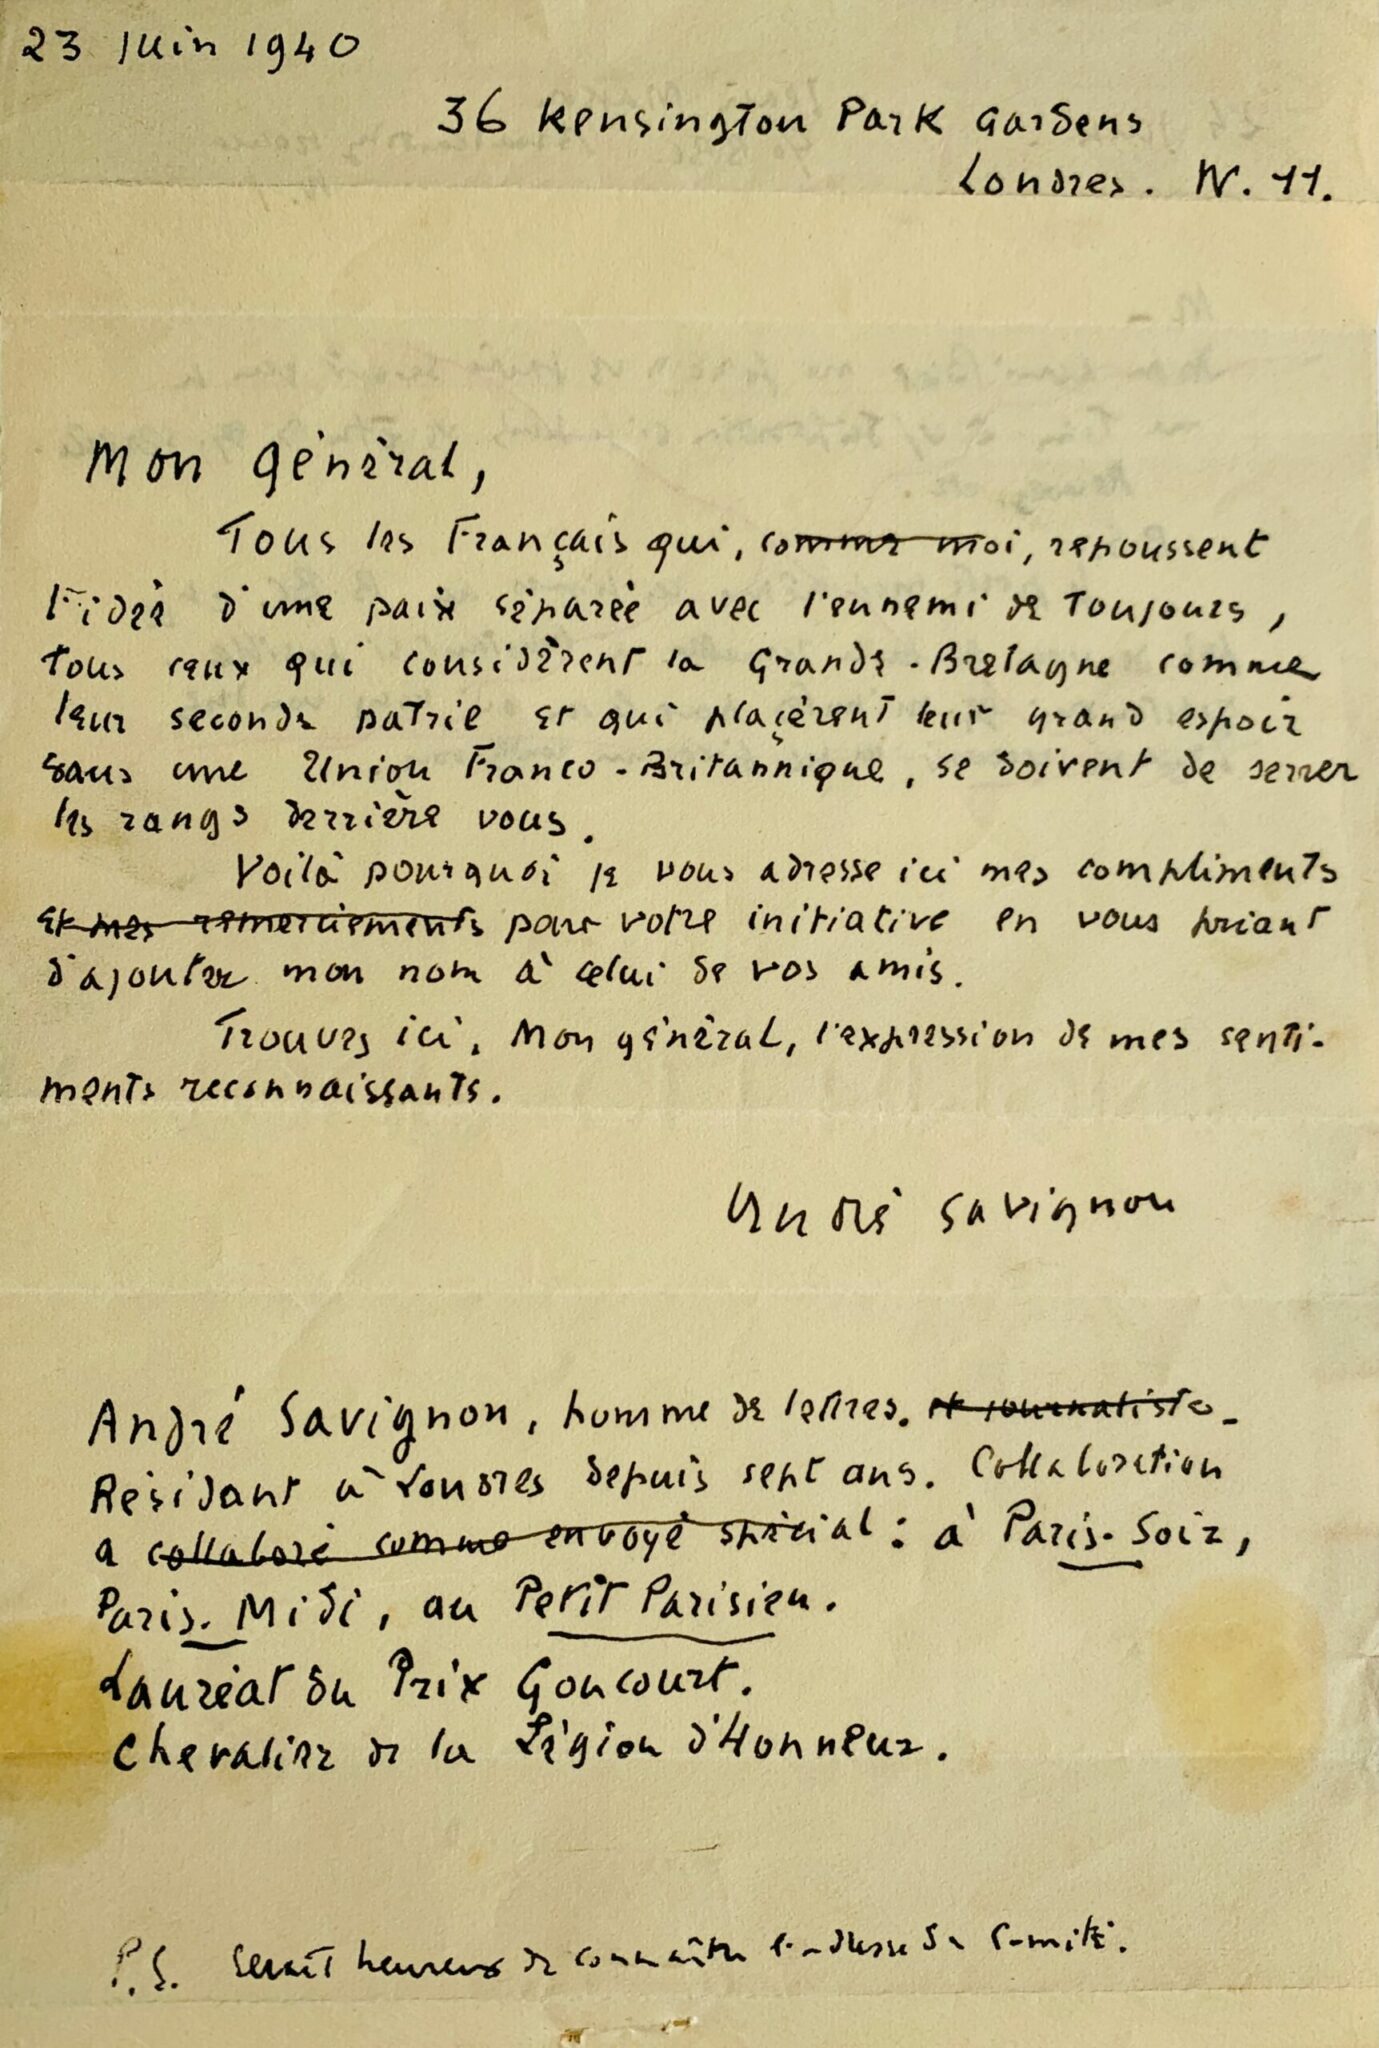 23 Juin 1940
36 Kensington Park Gardens
Londres. W. 11.
Mon Général,
Tous les Français qui, comme moi, repoussent
l'idée d'une paix séparée avec l'ennemi de toujours,
tous ceux qui considèrent la Grande-Bretagne comme
leur seconde patrie et qui plaçèrent leur grand espoir
dans une Union Franco-Britannique, se doivent de serrer
les rangs derrière vous.
Voilà pourquoi je vous adresse ici mes compliments
et mes remerciements pour votre initiative en vous priant
d'ajouter mon nom à celui de vos amis.
Trouvez ici, Mon général, l'expression de mes senti-
ments reconnaissants.
André Savignon
André Savignon, homme de lettres. et journaliste-
Résidant à Londres depuis sept ans. Collaboration
a collaboré comme envoyé spécial : à Paris-Soir,
Paris-Midi, au Petit Parisien.
Lauréat du Prix Goncourt.
Chevalier de la Légion d'Honneur.
P.S. Serait heureux de connaître l'adresse du Comité.